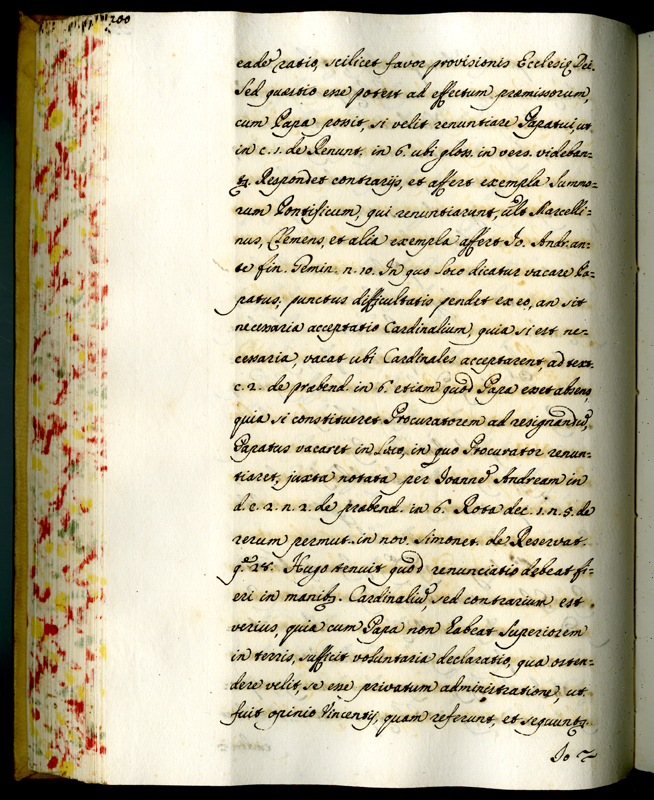 200
eadē ratio, scilicet favor provisionis Ecclesię Dei.
Sed quæstio esse potest ad effectum præmissorum,
cum Papa possit, si velit renuntiare Papatui, ut
in c. 1. de Renunt. in 6. ubi gloss. in vers. videban-
tꝛ. Respondet contrarijs, et affert exempla Summo-
rum Pontificum, qui renuntiarunt, ult Marcelli-
nus, Clemens, et alia exempla affert Io. Andr. an-
te fin. Gemin. n. 10. In quo Loco dicatur vacare Pa-
patus, punctus difficultatis pendet ex eo, an sit
necessaria acceptatio Cardinalium, quia si est ne-
cessaria, vacat ubi Cardinales acceptarent, ad text.
c. 2. de præbend. in 6. etiam quod Papa esset absens,
quia si constitueret Procuratorem ad resignandū,
Papatus vacaret in Loco, in quo Procurator renun-
tiaret, juxta notata per Ioannē Andream in
d. c. 2. n. 2. de præbend. in 6. Rota dec. 1. n. 5. de
rerum permut. in nov. Simonet. de Reservat.
q. 28. Hugo tenuit quod renunciatio debeat fi-
eri in manibꝫ. Cardinaliū, sed contrarium est
verius, quia cum Papa non habeat Superiorem
in terris, sufficit voluntaria declaratio, qua osten-
dere velit, se esse privatum administratione, ut
fuit opinio Vincentij, quam referunt, et sequuntꝛ
Io